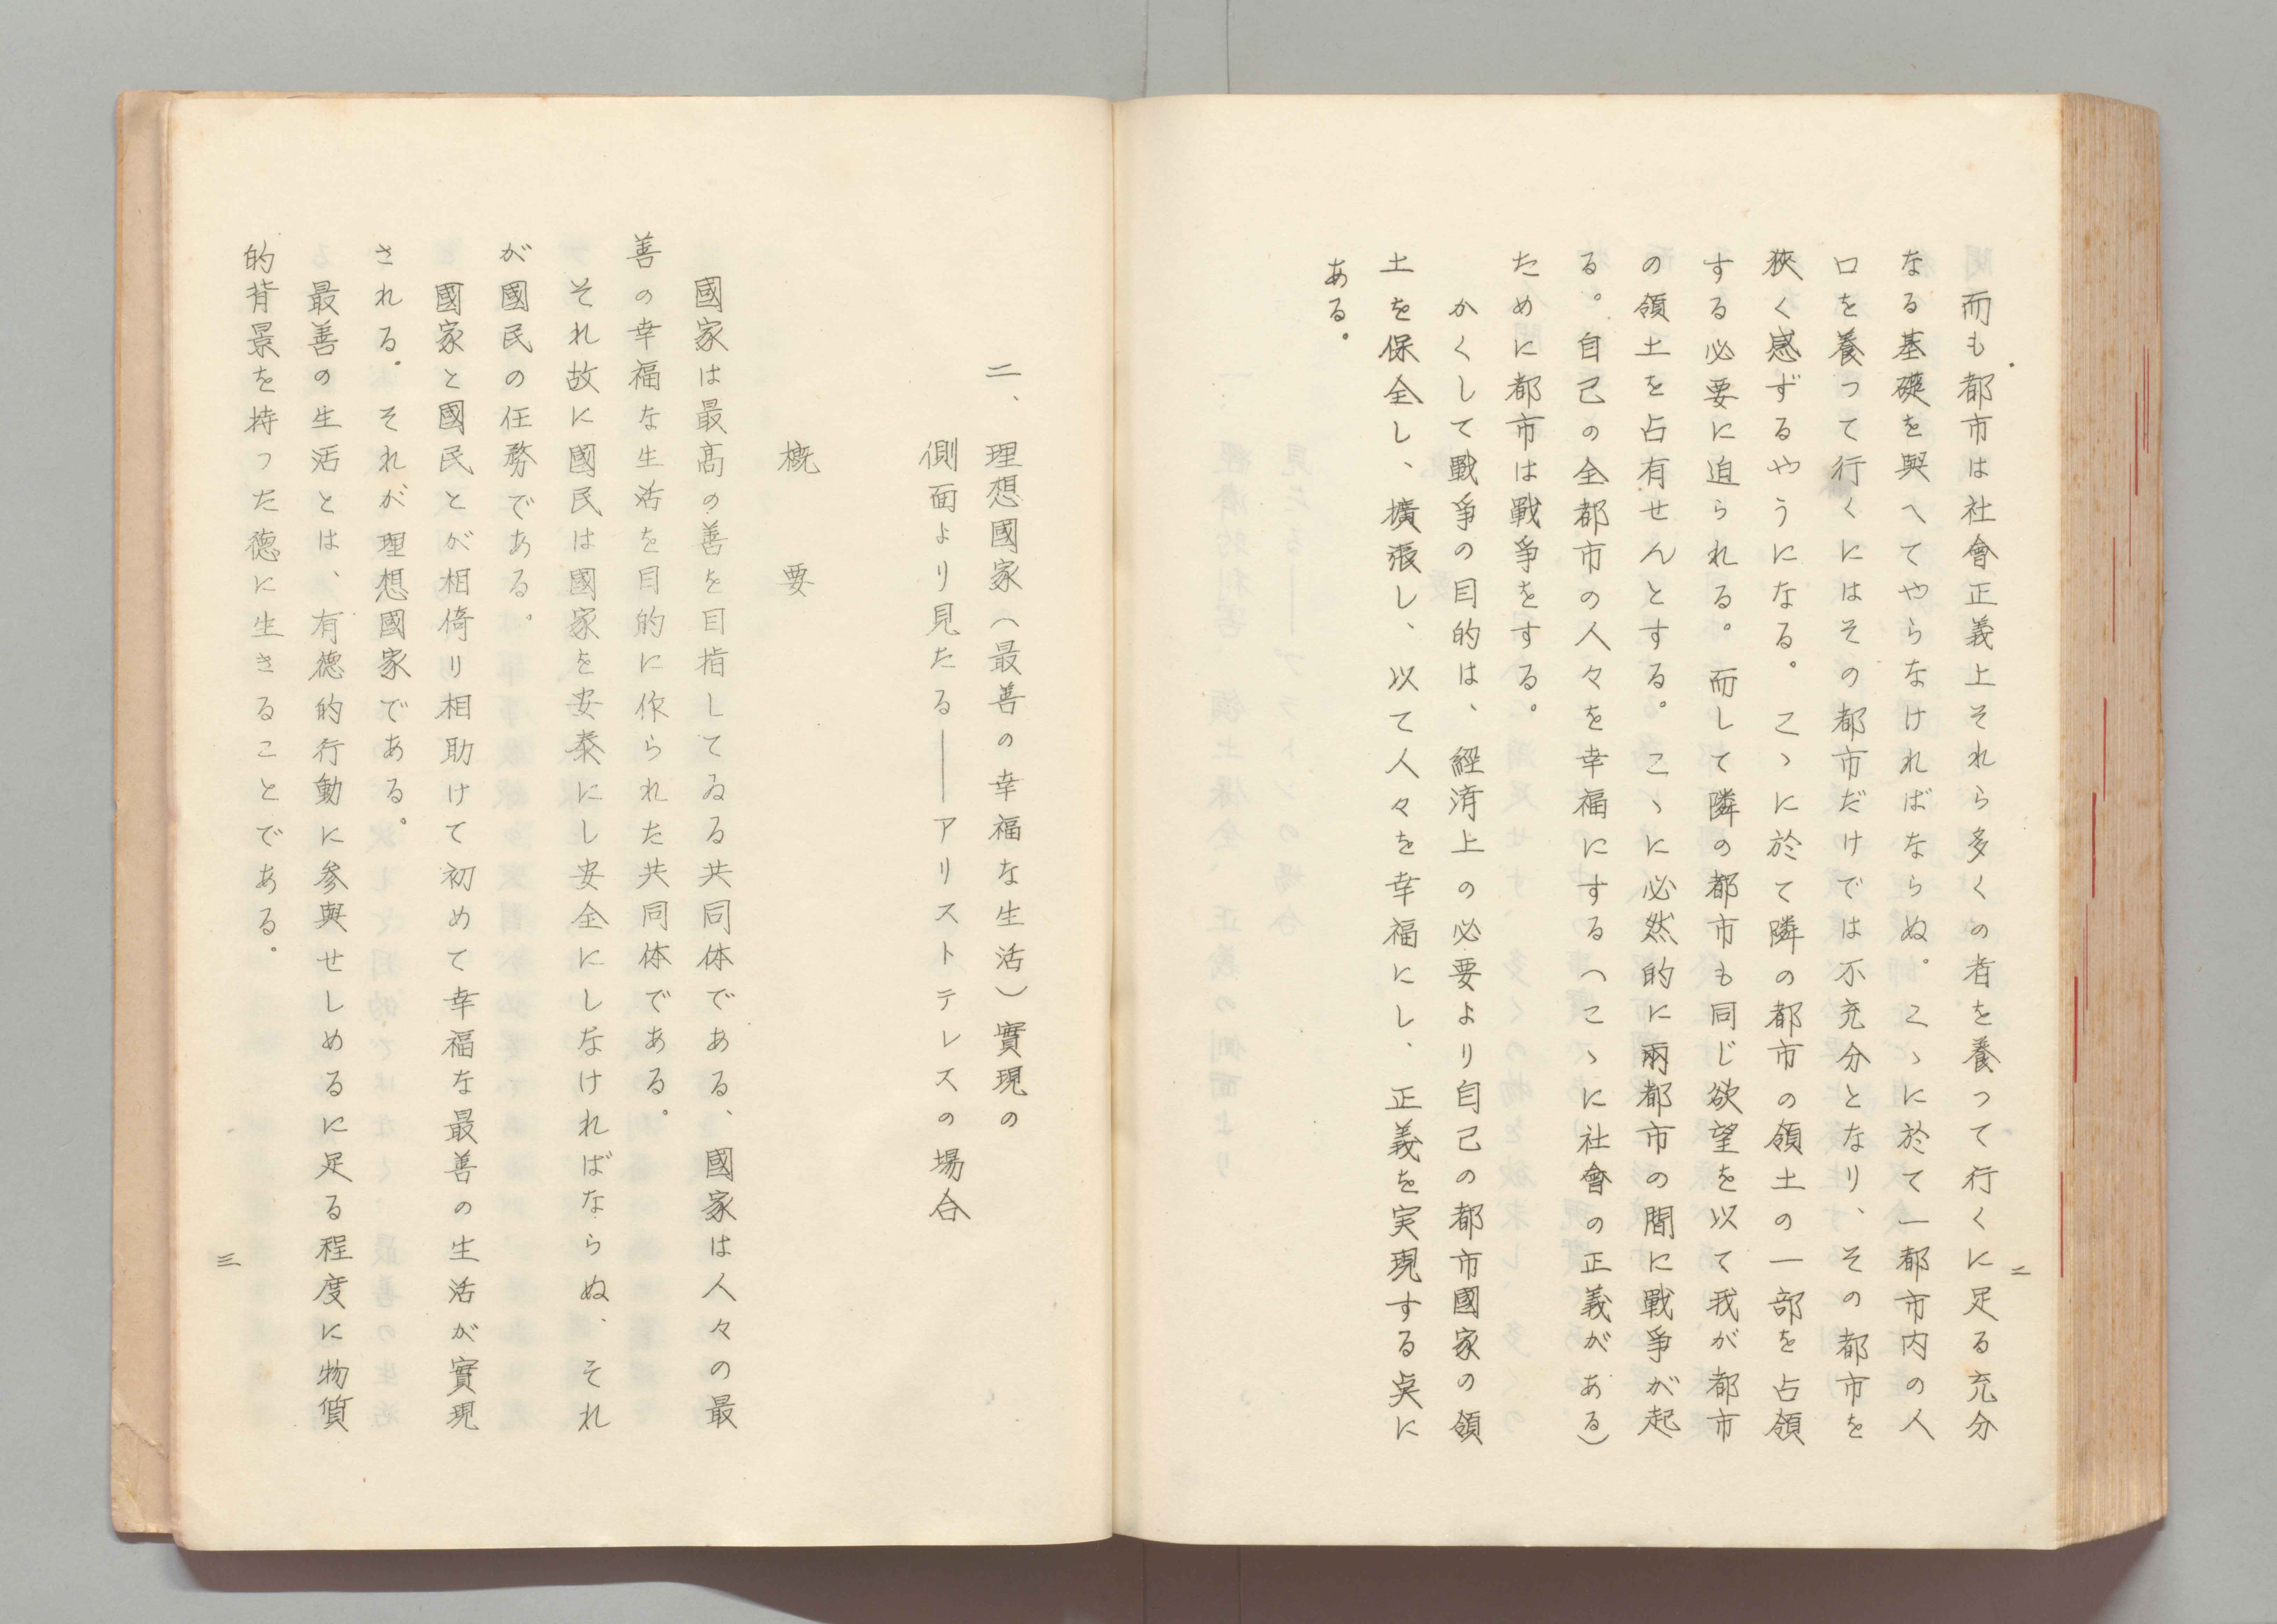 而も都市は社會正義上それら多くの者を養って行くに足る充分
なる基礎を與へてやらなければならぬ。こゝに於て一都市内の人
口を養って行くにはその都市だけでは不充分となり、その都市を
狹く感ずるやうになる。こゝに於て隣の都市の領土の一部を占領
する必要に迫られる。而して隣の都市も同じ欲望を以て我が都市
の領土を占有せんとする。こゝに必然的に兩都市の間に戰爭が起
る。自己の全都市の人々を幸福にする(こゝに社會の正義がある)
ために都市は戰爭をする。
かくして戰爭の目的は、經済上の必要より自己の都市國家の領
土を保全し、擴張し、以て人々を幸福にし、正義を実現する奌に
ある。
二
二、理想國家(最善の幸福な生活)實現の
側面より見たる――アリストテレスの場合
概要
國家は最高の善を目指してゐる共同体である、國家は人々の最
善の幸福な生活を目的に作られた共同体である。
それ故に國民は國家を安泰にし安全にしなければならぬ、それ
が國民の任務である。
國家と國民とが相倚り相助けて初めて幸福な最善の生活が實現
される。それが理想國家である。
最善の生活とは、有徳的行動に参與せしめるに足る程度に物質
的背景を持った徳に生きることである。
三